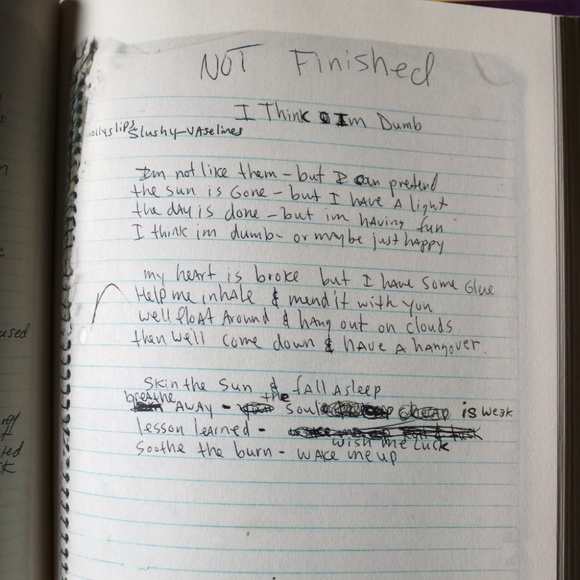 NOT Finished
I Think Im Dumb
ollyslips
Slushy-VAselines
Im not like them - but I can pretend
the sun is Gone - but I HAVE A light
the dAy is done - but im hAving fun
I think im dumb - or maybe just hAppy
my heart is broke but I have some Glue
Help me inhale & mend it with you
well floAt Around & hang out on clouds
then well come down & HAVE A hangover.
Skin the Sun & fAll Asleep
breathe AwAy - the soul cheap is weak
lesson learned - wish me luck
Soothe the burn - wAke me up
used